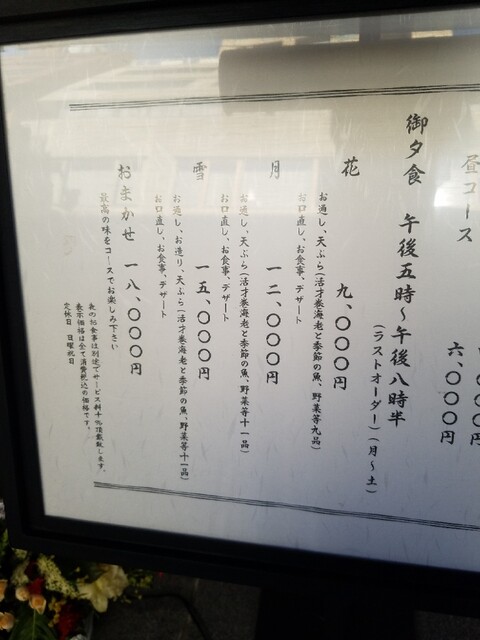 昼コース
六、〇〇〇円
御夕食 午後五時～午後八時半
（ラストオーダー）（月～土）
花 九、〇〇〇円
お通し、天ぷら（活才巻海老と季節の魚、野菜等九品）
お口直し、お食事、デザート
月 一二、〇〇〇円
お通し、天ぷら（活才巻海老と季節の魚、野菜等十一品）
お口直し、お食事、デザート
雪 一五、〇〇〇円
お通し、お造り、天ぷら（活才巻海老と季節の魚、野菜等十一品）
お口直し、お食事、デザート
おまかせ 一八、〇〇〇円
最高の味をコースでお楽しみ下さい
夜のお食事は別途でサービス料十％頂戴致します。
表示価格は全て消費税込の価格です。
定休日 日曜祝日